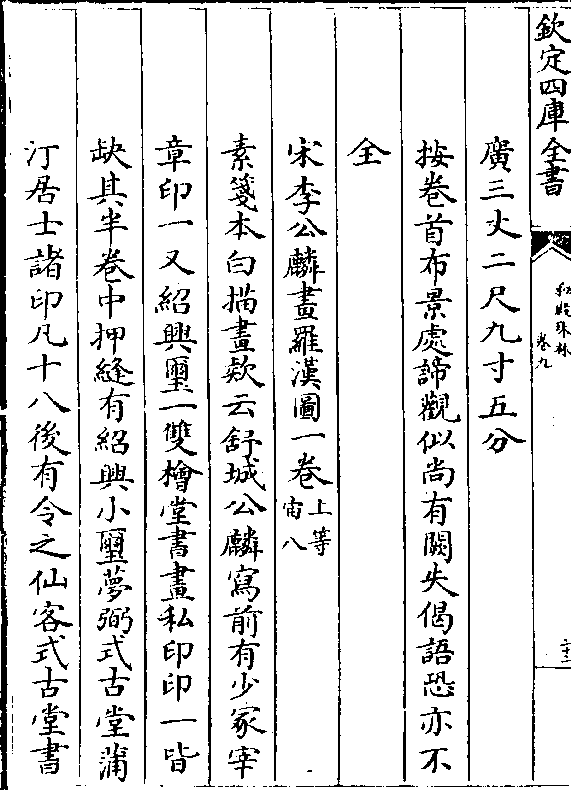 欽定四庫全書
秘殿珠林
卷九
廣三丈二尺九寸五分
按卷首布景處諦觀似尚有闕失偈語恐亦不
全
宋李公麟畫羅漢圖一卷 上等 宙八
素箋本白描畫欵云舒城公麟寫前有少冢宰
章印一又紹興璽一雙檜堂書畫私印印一皆
缺其半卷中押縫有紹興小璽夢弼式古堂蒲
汀居士諸印凡十八後有令之仙客式古堂書